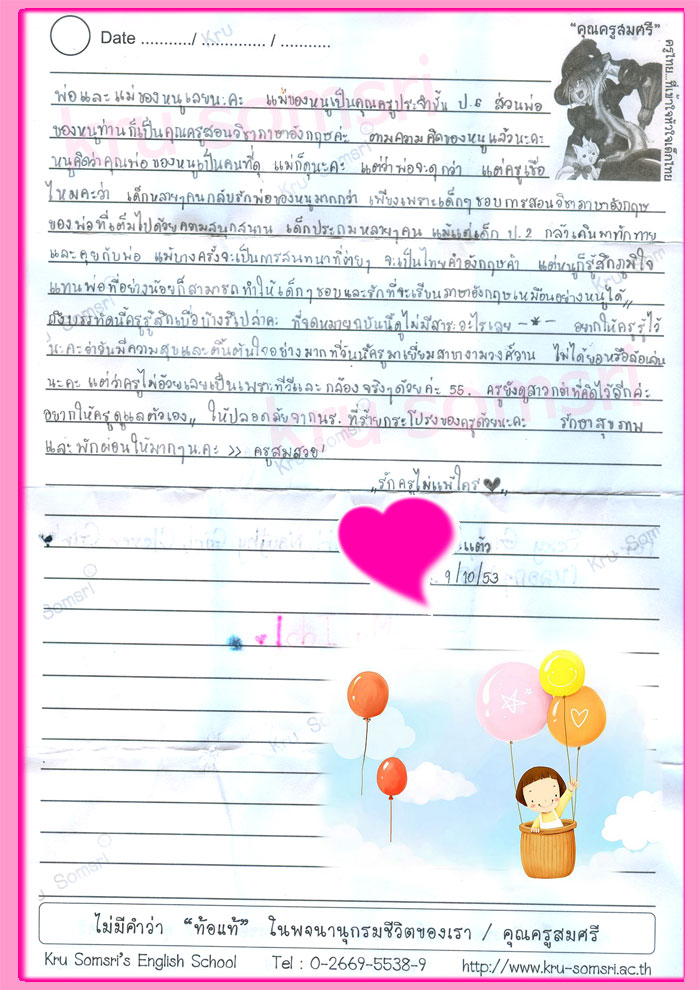 Date .........../ .............. / ...........
"คุณครูสมศรี"
ครูไทย...ที่เข้าใจหัวใจเด็กไทย
พ่อและแม่ของหนูเลยนะคะ แม่ของหนูเป็นคุณครูประจำชั้น ป.6 ส่วนพ่อ
ของหนูท่านก็เป็นคุณครูสอนวิชาภาษาอังกฤษค่ะ ตามความคิดของหนูแล้วนะคะ
หนูคิดว่าคุณพ่อของหนูเป็นคนที่ดุ แม่ก็ดุนะคะ แต่ว่าพ่อจะดุกว่า แต่ครูเชื่อ
ไหมคะว่า เด็กหลายๆคนกลับรักพ่อของหนูมากกว่า เพียงเพราะเด็กๆชอบการสอนวิชาภาษาอังกฤษ
ของพ่อที่เต็มไปด้วยความสนุกสนาน เด็กประถมหลายๆคน แม้แต่เด็ก ป.2 กล้าเดินมาทักทาย
และคุยกับพ่อ แม้บางครั้งจะเป็นการสนทนาที่ต่ายๆ จะเป็นไทยคำอังกฤษคำ แต่หนูก็รู้สึกภูมิใจ
แทนพ่อที่อย่างน้อยก็สามารถทำให้เด็กๆชอบและรักที่จะเรียนภาษาอังกฤษเหมือนอย่างหนูได้,,
ถึงบรรทัดนี้ครูรู้สึกเบื่อบ้างรึไปล่าคะ ที่จดหมายฉบับนี้ดูไม่มีสาระอะไรเลย -*- อยากให้ครูรู้ไว้
นะคะว่าฉันมีความสุขและตื่นตันใจอย่างมากที่วันนี้ครูมาเยี่ยมสาขางามวงศ์วาน ไม่ได้ยอหรือล้อเล่น
นะคะ แต่ว่าครูไม่อ้วยเลยเป็นเพราะทีวีและกล้องจริงๆด้วยค่ะ 55. ครูยังดูสาวกว่าที่คิดไว้อีกค่ะ
อยากให้ครูดูแลตัวเอง,, ให้ปลอดภัยจากนร. ที่ร้ายกระโปรงของครูด้วยนะคะ รักษาสุขภาพ
และพักผ่อนให้มากๆนะคะ >> ครูสมสวย'
,,รักครูไม่แพ้ใคร ♥,,
แต้ว
9/10/53
ไม่มีคำว่า "ท้อแท้" ในพจนานุกรมชีวิตของเรา / คุณครูสมศรี
Kru Somsri's English School Tel : 0-2669-5538-9 http://www.kru-somsri.ac.th